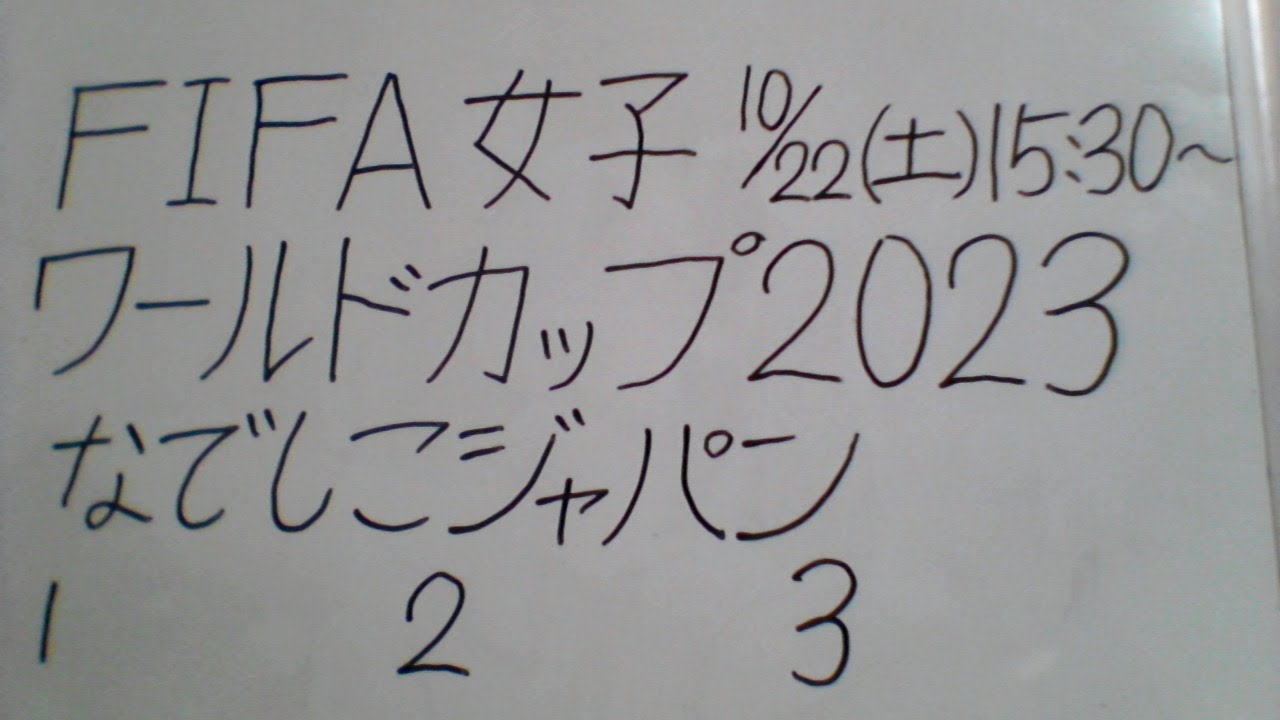 FIFA女子 10/22(土)15:30~
ワールドカップ2023
なでしこジャパン
1 2 3